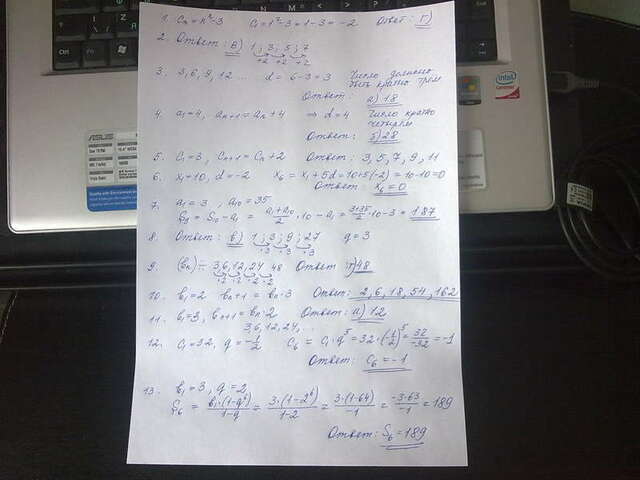 1. Cn = n²-3 C1 = 1²-3 = 1-3 = -2 Ответ: Г)
2. Ответ: В) 1; 3; 5; 7
+2 +2 +2
3. 3, 6, 9, 12 ... d = 6-3 = 3 Число должно быть кратно трём
Ответ: а) 18
4. a1 = 4, an+1 = an + 4 ⇒ d = 4 Число кратно четырём
Ответ: б) 28
5. C1 = 3, Cn+1 = Cn + 2 Ответ: 3, 5, 7, 9, 11
6. x1 = 10, d = -2 x6 = x1 + 5d = 10 + 5(-2) = 10-10 = 0
Ответ: x6 = 0
7. a1 = 3, a10 = 35
S9 = Sn - a1 = (a1 + a10)/2 · 10 - a1 = (3+35)/2 · 10 - 3 = 187
8. Ответ: в) 1; 3; 9; 27 q = 3
·3 ·3 ·3
9. (bn) ÷ 3, 6, 12, 24 48 Ответ г) 48
·2 ·2 ·2 ·2
10. b1 = 2 bn+1 = bn · 3 Ответ: 2, 6, 18, 54, 162
11. b1 = 3, bn+1 = bn · 2 Ответ: а) 12
3, 6, 12, 24, ...
12. C1 = 32, q = -1/2 C6 = C1 · q⁵ = 32 · (-1/2)⁵ = 32/-32 = -1
Ответ: C6 = -1
13. b1 = 3, q = 2
S6 = b1 · (1-q⁶)/1-q = 3 · (1-2⁶)/1-2 = 3 · (1-64)/-1 = -3·63/-1 = 189
Ответ: S6 = 189
ASUS
intel